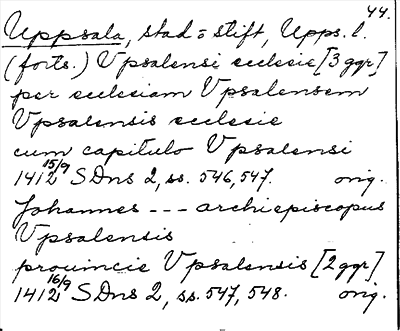 44.
Uppsala, stad o stift, Upps. l.
(forts.) Vpsalensi ecclesie [3 ggr]
per ecclesiam Vpsalensem
Vpsalensis ecclesie
cum capitulo Vpsalensi
1412 15/9 SDns 2, ss. 546, 547. orig.
Johannes --- archiepiscopus
Vpsalensis
prouincie Vpsalensis [2 ggr]
1412 16/9 SDns 2, ss. 547, 548. orig.